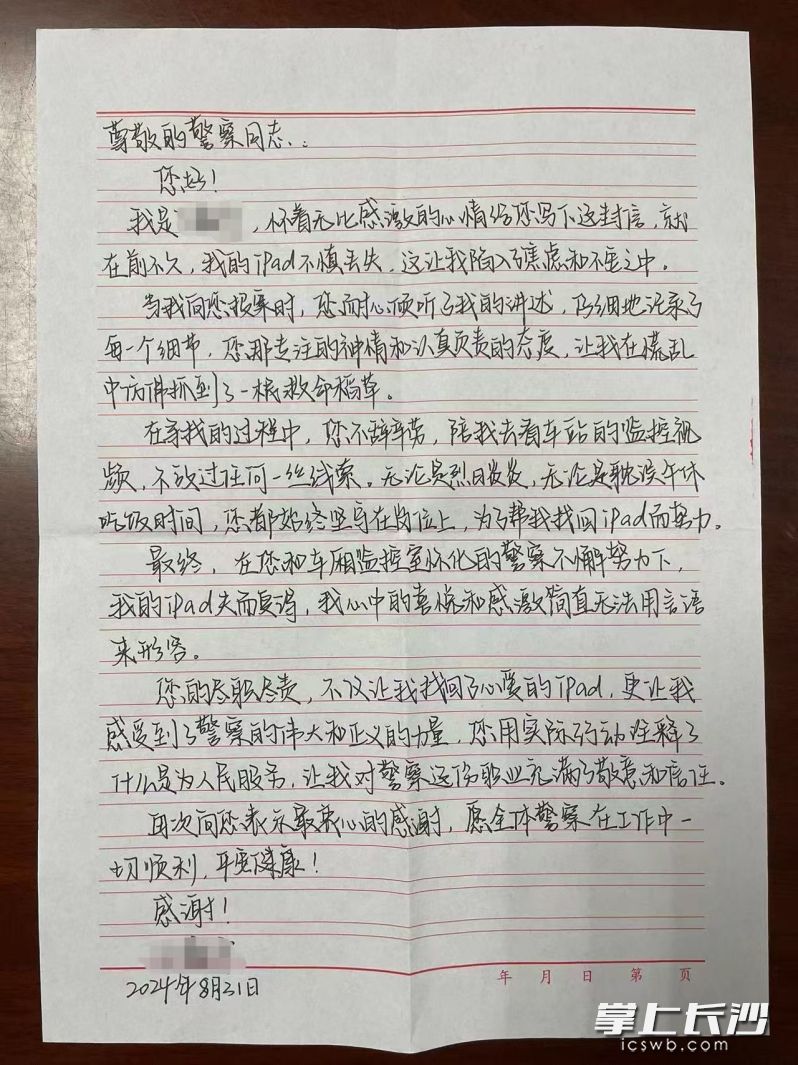 尊敬的警察同志:
您好!
我是 ,怀着无比感激的心情给您写下这封信,就
在前不久,我的iPad不慎丢失,这让我陷入了焦虑和不安之中。
当我向您报案时,您耐心倾听了我的讲述,仔细地记录了
每一个细节,您那专注的神情和认真负责的态度,让我在慌乱
中仿佛抓到了一根救命稻草。
在寻找的过程中,您不辞辛劳,陪我去看车站的监控视
频,不放过任何一丝线索。无论是烈日炎炎,无论是耽误午休
吃饭时间,您都始终坚守在岗位上,为了帮我找回iPad而努力。
最终,在您和车厢监控室怀化的警察不懈努力下,
我的iPad失而复得,我心中的喜悦和感激简直无法用言语
来形容。
您的尽职尽责,不仅让我找回了心爱的iPad,更让我
感受到了警察的伟大和正义的力量,您用实际行动诠释了
什么是为人民服务,让我对警察这份职业充满了敬意和信任。
再次向您表示最衷心的感谢,愿全体警察在工作中一
切顺利,平安健康!
感谢!
年 月 日 第 页
2024年8月21日
掌上长沙
icswb.com